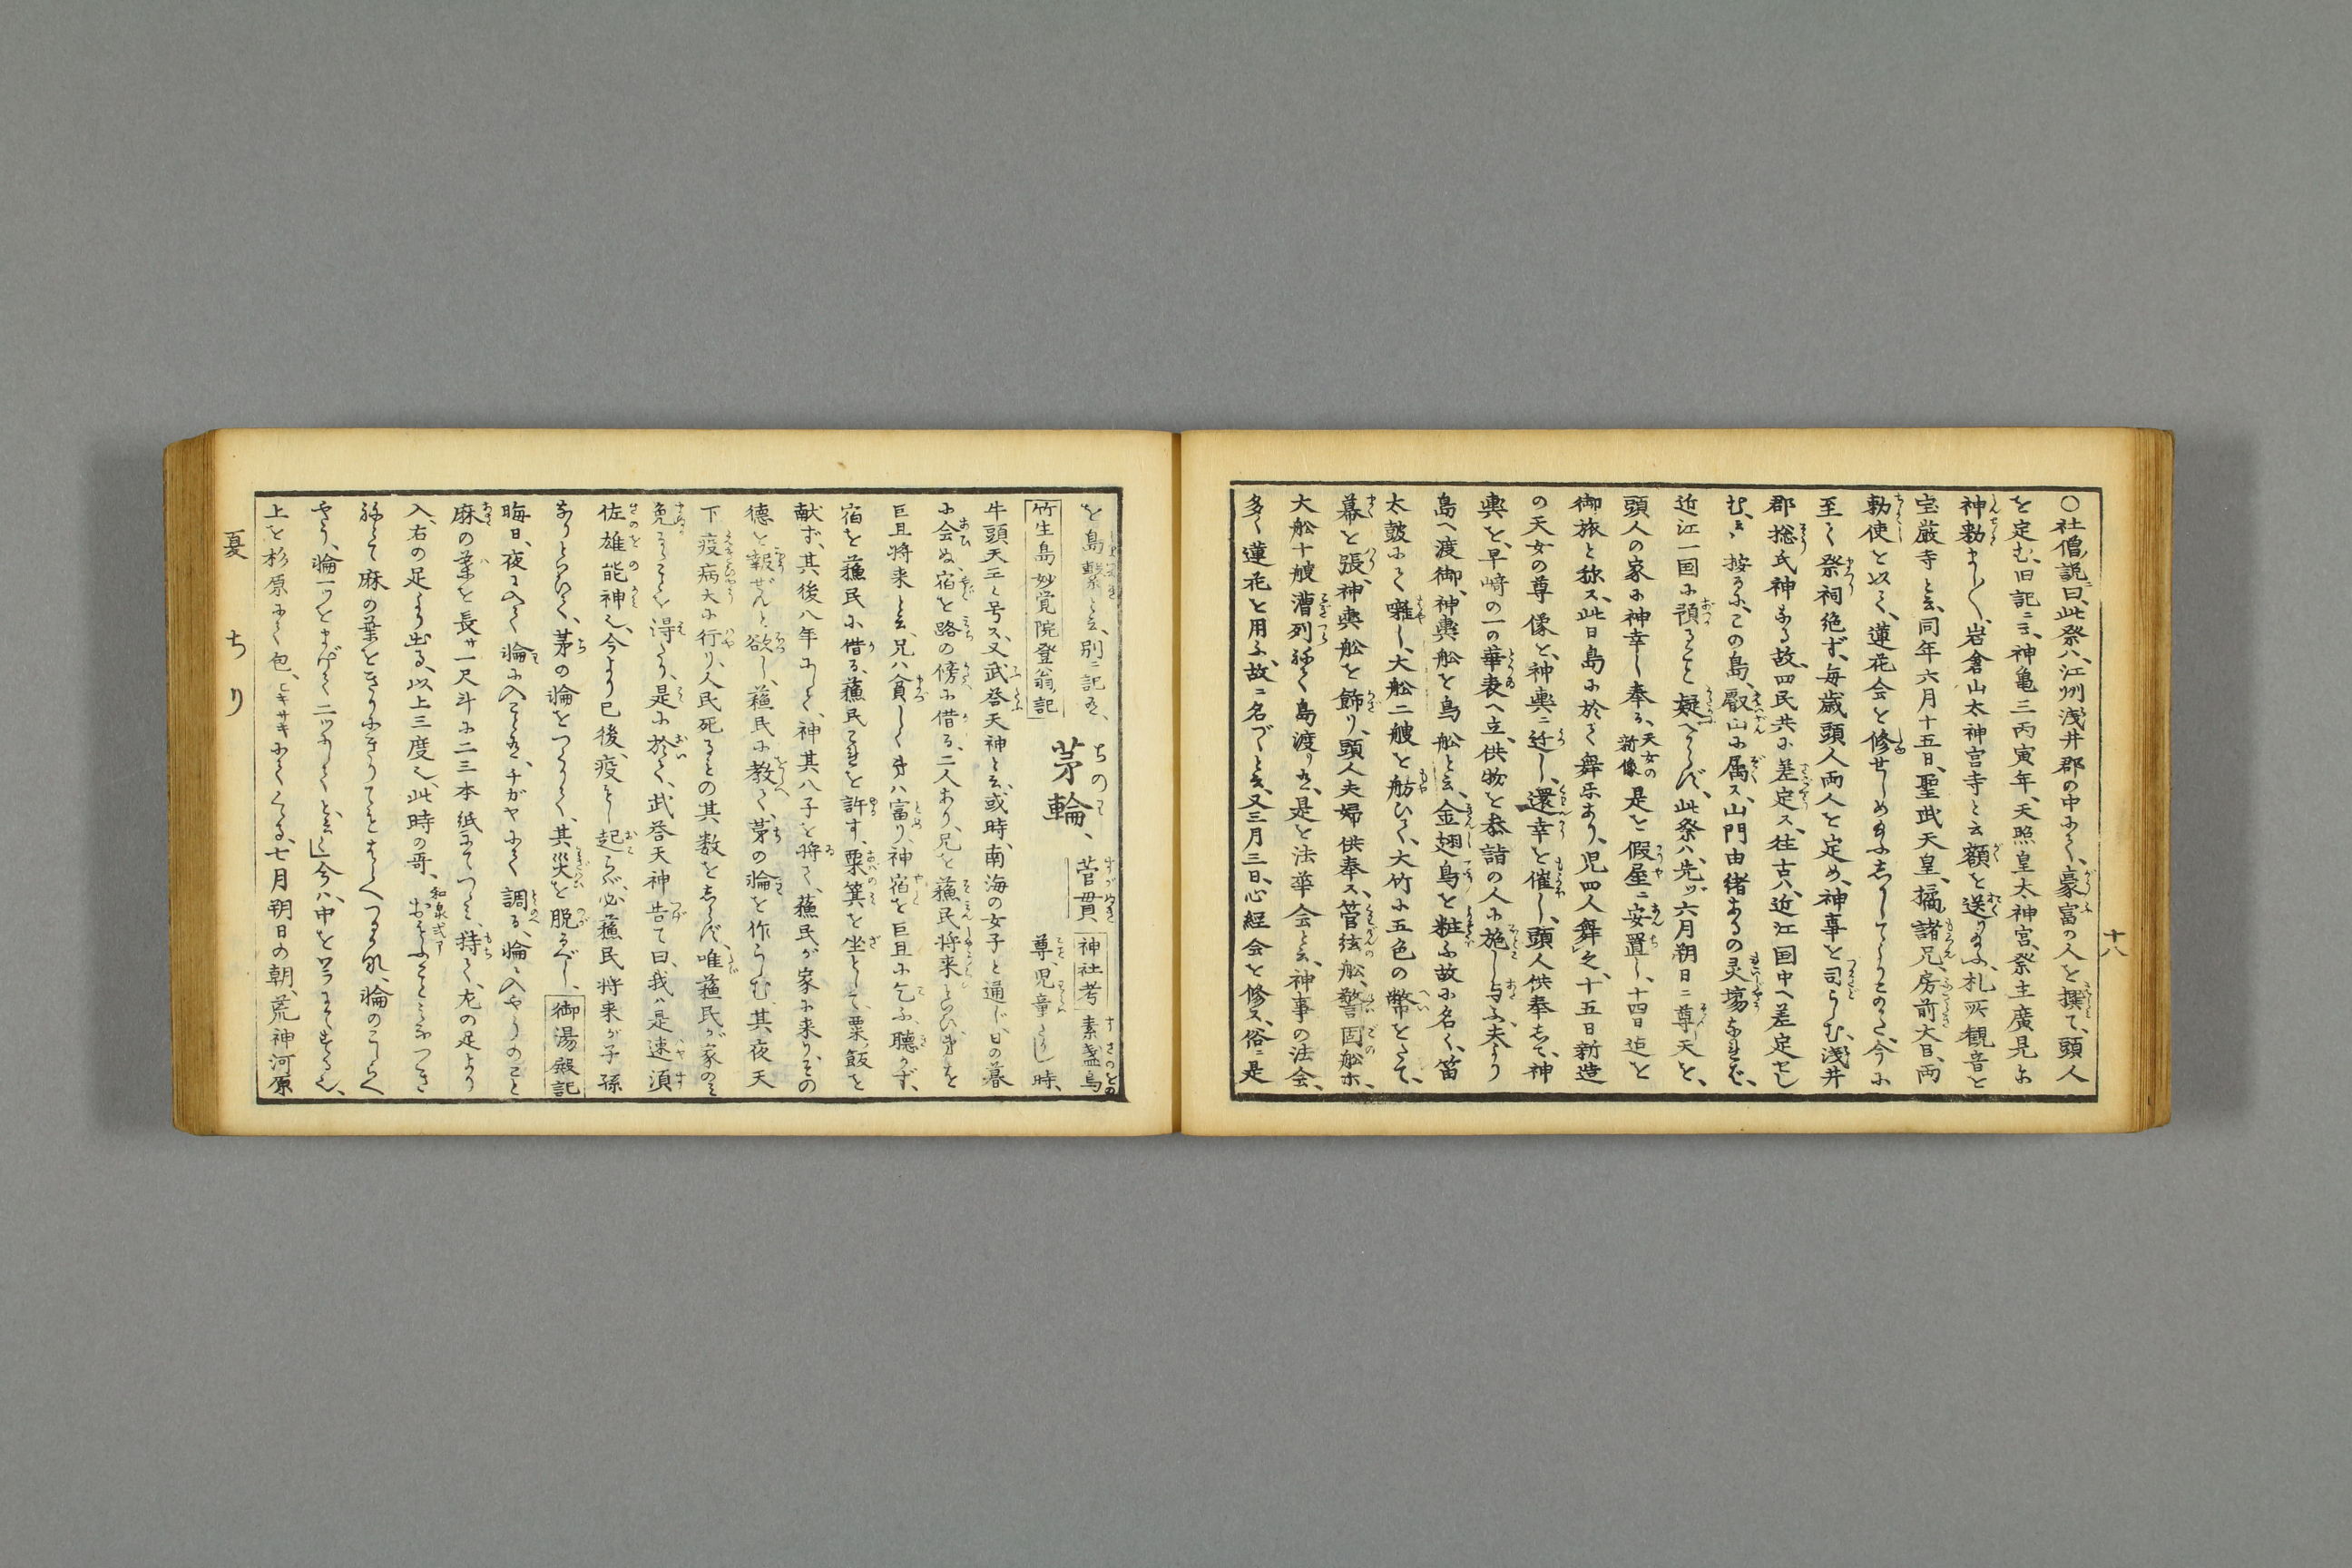 十八
〇社僧説曰、此祭ハ、江州浅井郡の中にて、豪富の人を撰て、頭人
を定む、旧記ニ云、神亀三丙寅年、天照皇太神宮、祭主廣見に
神勅まし〱、岩倉山太神宮寺と云額を送り給ふ、札所観音と
宝厳寺と云、同年六月十五日、聖武天皇、橘諸兄、房前大臣、両
勅使を以て、蓮花会を修せしめ給ふ
至て祭祠絶ず、毎歳頭人両人を定め、神事を司らしむ、浅井
郡総氏神なる故、四民共に差定ス、往古ハ、近江国中へ差定せし
む、按るに、この島、叡山に属ス、山門由緒あるの灵場なれば、
近江一国に預ること疑べからず、此祭ハ、先ヅ六月朔日ニ尊天を、
頭人の家に神幸し奉る、天女の新像是を假屋ニ安置し、十四日迄を
御旅と称ス、此日島に於て舞乐あり、児四人舞之、十五日新造
の天女の尊像を、神輿ニ迁し、還幸を催し、頭人供奉して、神
輿を、早崎の一の華表へ立、供物を恭詣の人に施し与ふ、夫より
島へ渡御、神輿舩を鳥舩と云、金翅鳥を粧ふ故に名く、笛
太鼓にて囃し、大舩二艘を舫ひて、大竹に五色の幣をたて、
幕を張、神輿舩を飾り、頭人夫婦供奉ス、菅絃舩、警固舩ホ、
大舩十艘漕列ねて島渡り也、是を法華会と云、神事の法会、
多く蓮花を用ふ、故ニ名づくと云、又三月三日、心経会を修ス、俗ニ是
を島繫と云、別ニ記也、
竹生島妙覚院登翁記
茅輪、ちのわ
菅貫、神社考 素盞烏
尊、児童たりし時、
牛頭天王と号ス、又武荅天神と云、或時、南海の女子と通じ、日の暮
に会ぬ、宿を路の傍に借る、二人あり、兄を蘓民将来といひ、弟を
巨且将来と云、兄ハ貧しく弟ハ富り、神宿を巨且に乞ふ、聴かず、
宿を蘓民に借る、蘓民これを許す、粟箕を坐として、粟飯を
献ず、其後八年にして、神其八子を将て、蘓民が家に来り、その
徳を報ぜんと欲し、蘓民に教て、茅の輪を作らしむ、其夜天
下疫病大に行り、人民死るもの其数をしらず、唯蘓民が家のミ
免るゝことを得たり、是に於て、武荅天神告て曰、我ハ是速須
佐雄能神也、今より已後、疫もし起らバ、必蘓民将来が子孫
なりといひて、茅の輪をつくりて、其災を脱るべし、御湯殿記
晦日、夜に入て輪に入こと也、チガヤにて調る、輪に入やうのこと
麻の葉を長サ一尺斗に二三本紙にてつゝミ、持て、左の足より
入、右の足より出る、以上三度也、此時の哥、和泉式部
麻の葉をきりにきりても
上を杉原にて包、ヒキサキにてくゝる、七月朔日の朝、荒神河原
夏　ち　り